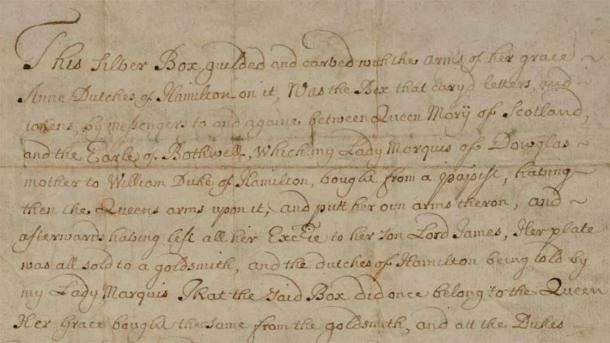 This Silver Box, guilded and carved with the arms of her grace ~
Anne Dutches of Hamilton on it, Was the Box that cary'd letters and
tokens, by messengers to and againe between Queen Mary of Scotland,
and the Earle of Bothwell, which my Lady Marquis of Dowglas ~
mother to William Duke of Hamilton, bought from a papist, having ~
then the Queens arms upon it, and putt her own arms theron, and ~
afterwards having left all her to her son Lord James, Her plate
was all sold to a goldsmith, and the dutches of Hamilton being told by
my Lady Marquis That the said Box did once belong to the Queen
Her Grace bought the same from the goldsmith, and att the Dukes ~